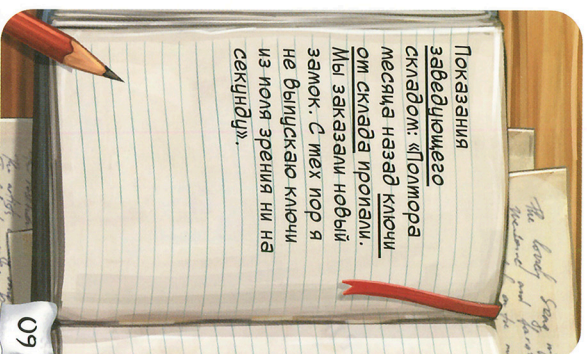 Показания
заведующего
складом: «Полтора
месяца назад ключи
от склада пропали.
Мы заказали новый
замок. С тех пор я
не выпускаю ключи
из поля зрения ни на
секунду».
09
The lovely